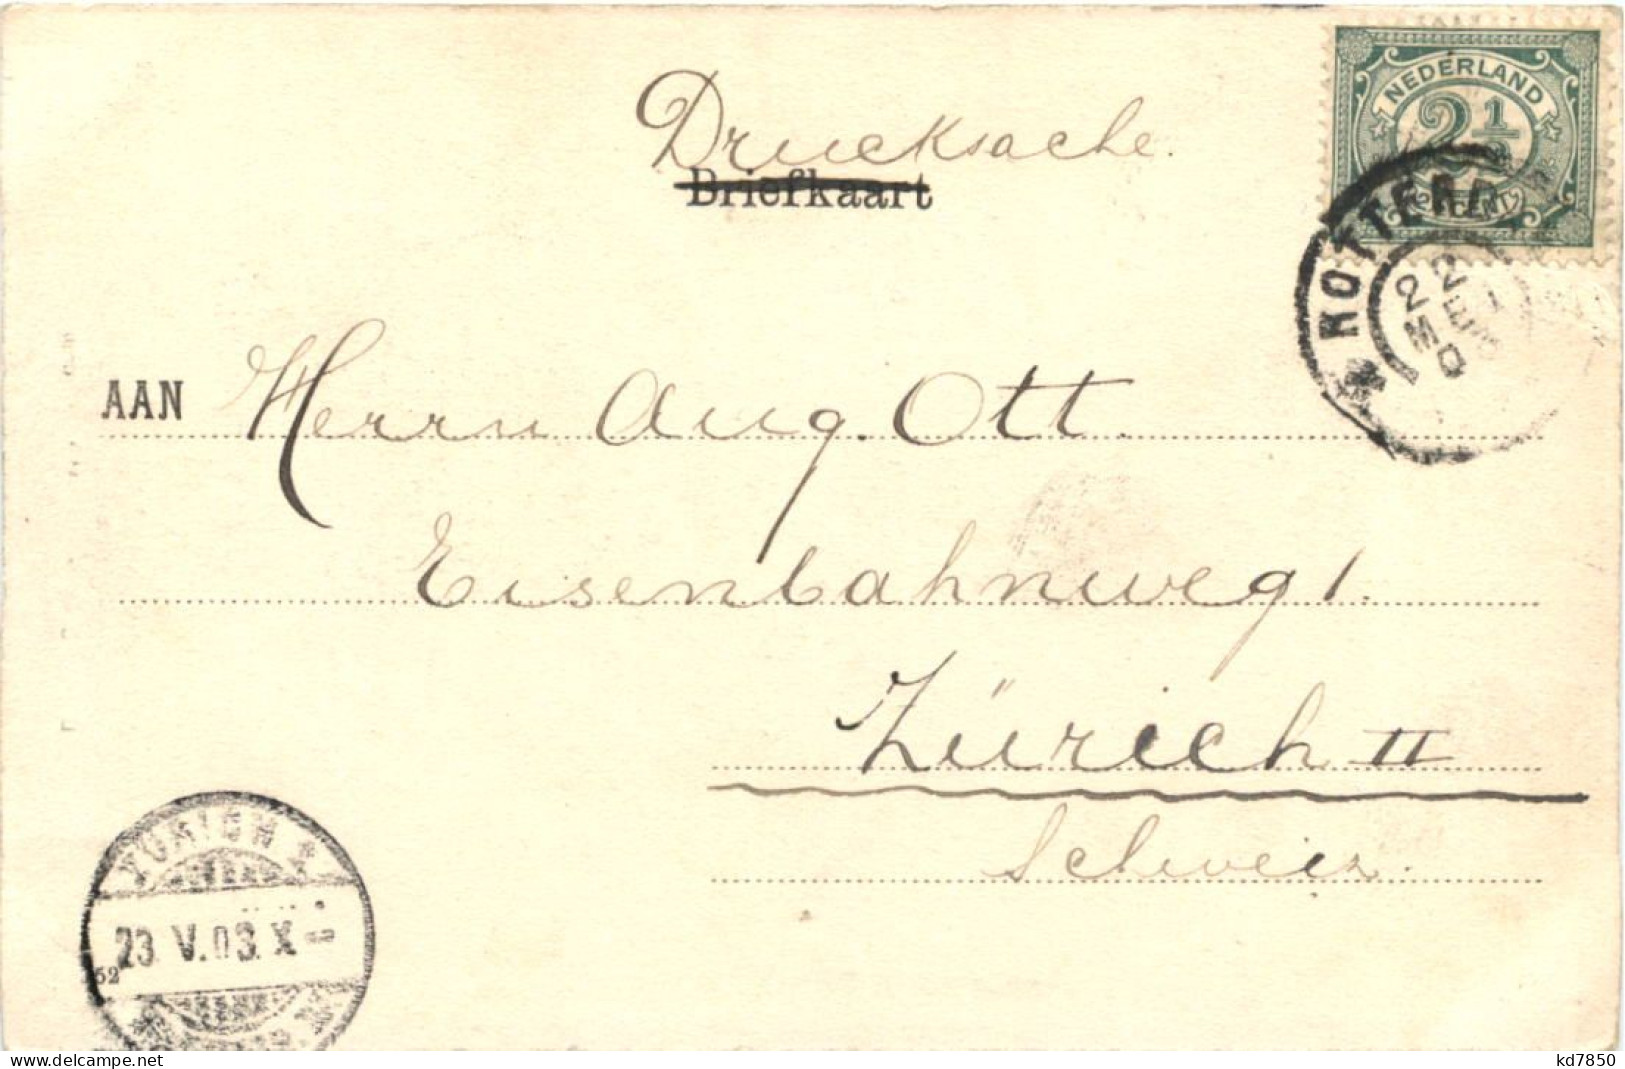 Drucksache.
Briefkaart
NEDERLAND
2½
CENT
ROTTERD
22
MEI
AAN Herrn Aug. Ott.
Eisenbahnweg 1.
Zürich II
Schweiz.
ZÜRICH
23. V. 03. X
52
delcampe.net
kd7850